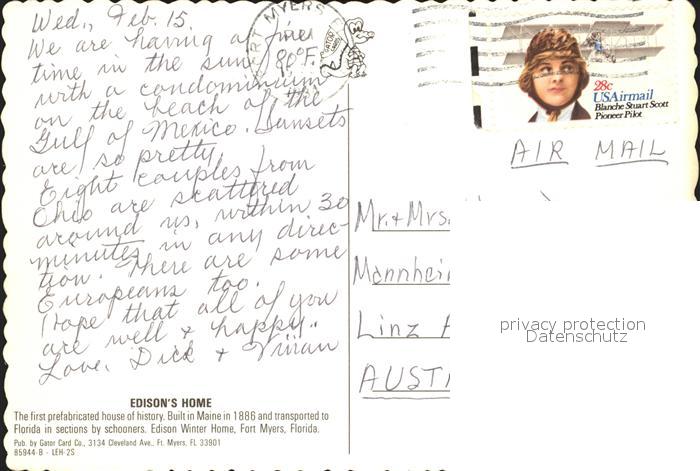 Wed., Feb. 15.
We are having a fine
time in the sun, 80°F.
with a condominium
on the beach of the
Gulf of Mexico. Sunsets
are so pretty.
Eight couples from
Ohio are scattered
around us, within 30
minutes in any direc-
tion. There are some
Europeans too.
Hope that all of you
are well & happy..
Love, Dick & Vivian
EDISON'S HOME
The first prefabricated house of history. Built in Maine in 1886 and transported to
Florida in sections by schooners. Edison Winter Home, Fort Myers, Florida.
Pub. by Gator Card Co., 3134 Cleveland Ave., Ft. Myers, FL 33901
85944-B - LEH-2S
FORT MYERS
28c
USAirmail
Blanche Stuart Scott
Pioneer Pilot
AIR MAIL
Mr. & Mrs.
Linz A
AUST
privacy protection
Datenschutz